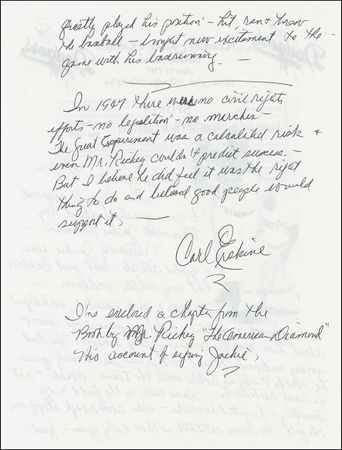 greatly played his position - hit, ran & threw
the baseball - brought new excitement to the -
game with his baserunning. -
In 1947 there were no civil rights
efforts - no legislation - no marches -
The great Experiment was a calculated risk &
even Mr. Rickey couldn't predict success -
But I believe he did feel it was the right
thing to do and believed good people would
support it, -
Carl Erskine
I've enclosed a chapter from the
Book by Mr Rickey "The American Diamond"
His account of signing Jackie,